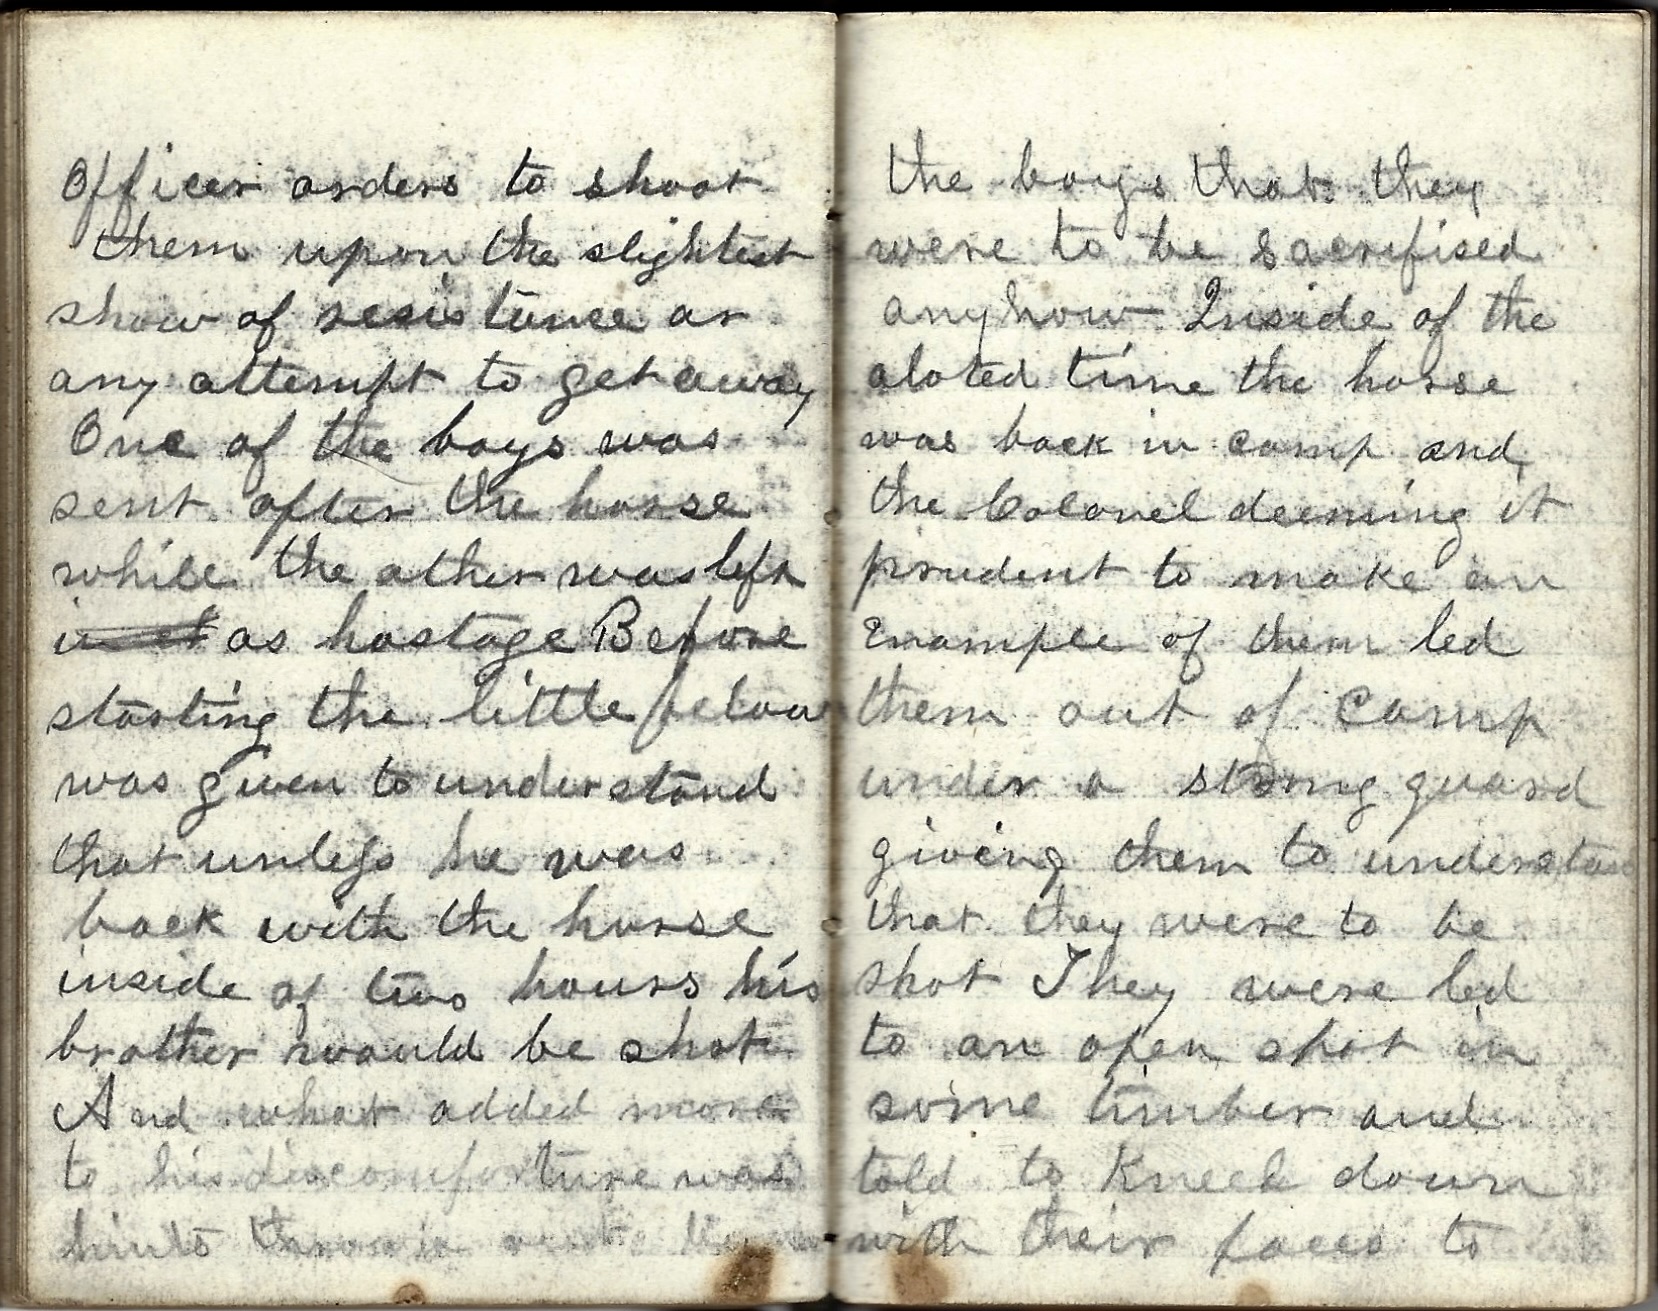 Officer orders to shoot
them upon the slightest
show of resistance or
any attempt to get away
One of the boys was
sent after the horse
while the other was left
as hostage Before
starting the little fellow
was given to understand
that unless he was
back with the horse
inside of two hours his
brother would be shot
And what added more
to his discomforture was
hints thrown out
the boys that they
were to be Sacrifised
anyhow Inside of the
aloted time the horse
was back in camp and
the Colonel deeming it
prudent to make an
Example of them led
them out of Camp
under a strong guard
giving them to understan
that they were to be
shot They were led
to an open shot in
some timber and
told to Kneel down
with their faces to